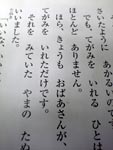 さいたように あかるいので
でも てがみを いれる ひとは
ほとんど ありません。
ほら、きょうも おばあさんが、
てがみを いれただけです。
それを みていた やまの たぬ
いいました。